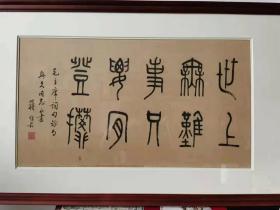 世上
無難
事只
要肯
登攀
毛主席詞句
同志